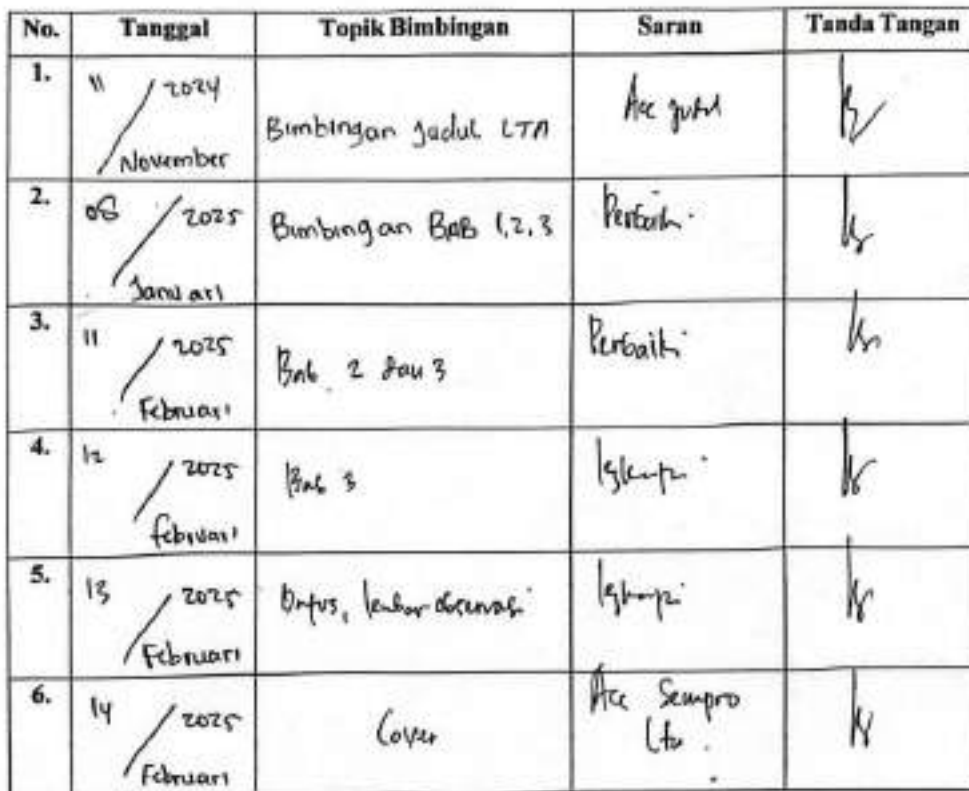 No. Tanggal Topik Bimbingan Saran Tanda Tangan
1. 11 / 2024 November Bimbingan Judul LTA Acc judul
2. 08 / 2025 Januari Bimbingan BAB 1,2,3 Perbaiki
3. 11 / 2025 Februari Bab 2 dan 3 Perbaiki
4. 12 / 2025 Februari Bab 3
5. 13 / 2025 Februari lembar observasi
6. 14 / 2025 Februari Cover Acc Sempro Lta.